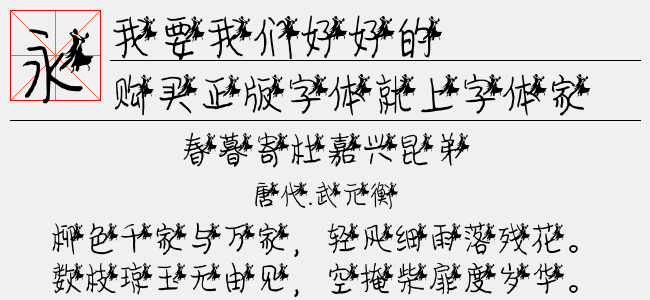 永
我要我们好好的
购买正版字体就上字体家
春暮寄杜嘉兴昆弟
唐代.武元衡
柳色千家与万家，轻风细雨落残花。
数枝琼玉无由见，空掩柴扉度岁华。